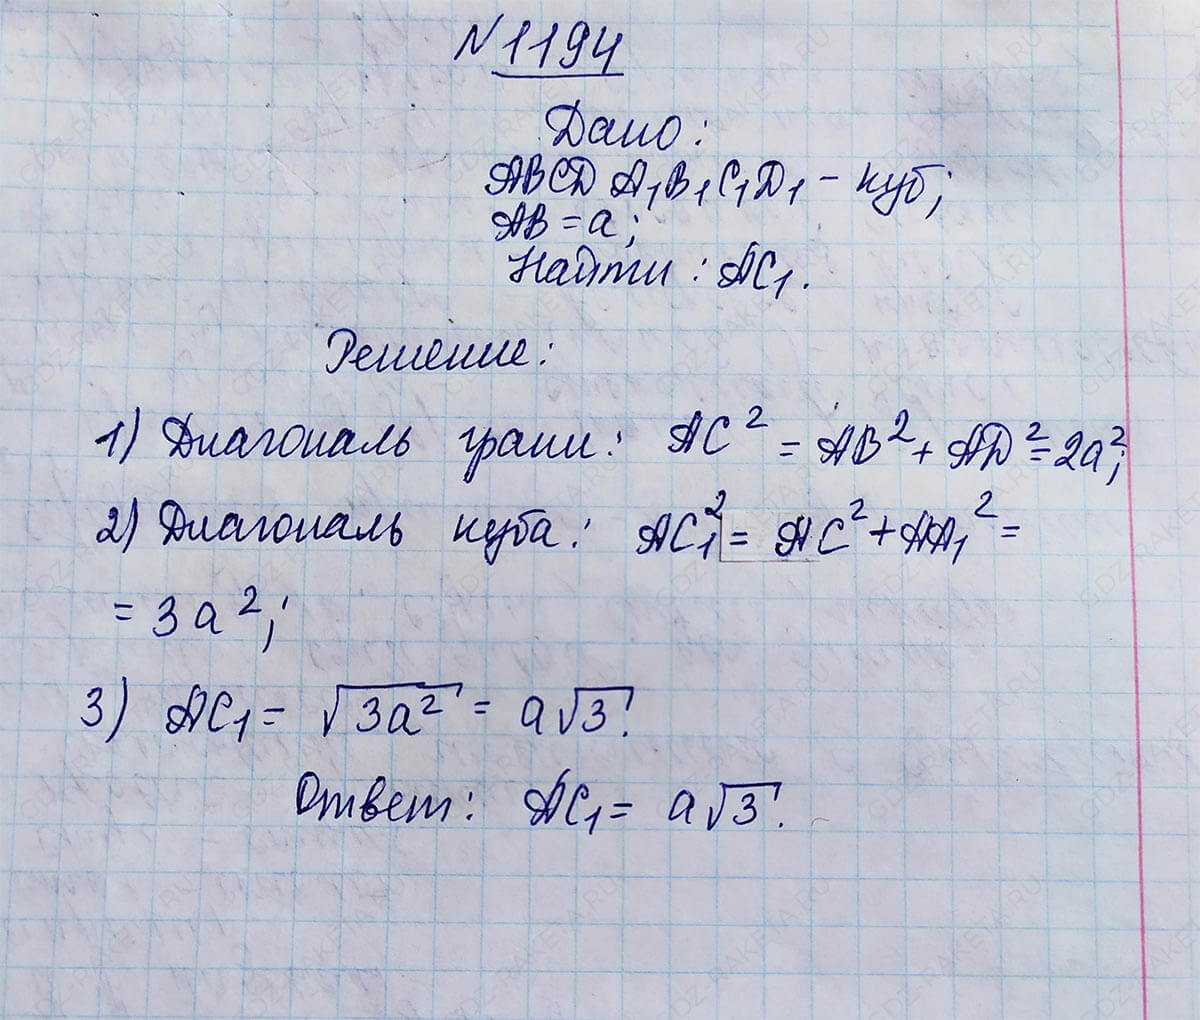 №1194
Дано:
ABCD A₁B₁C₁D₁ – куб;
AB = a;
Найти: AC₁.
Решение:
1) Диагональ грани: AC² = AB² + AD² = 2a²;
2) Диагональ куба: AC₁² = AC² + AA₁² =
= 3a²;
3) AC₁ = √3a² = a√3.
Ответ: AC₁ = a√3.
GDZ-RAKETA.RU